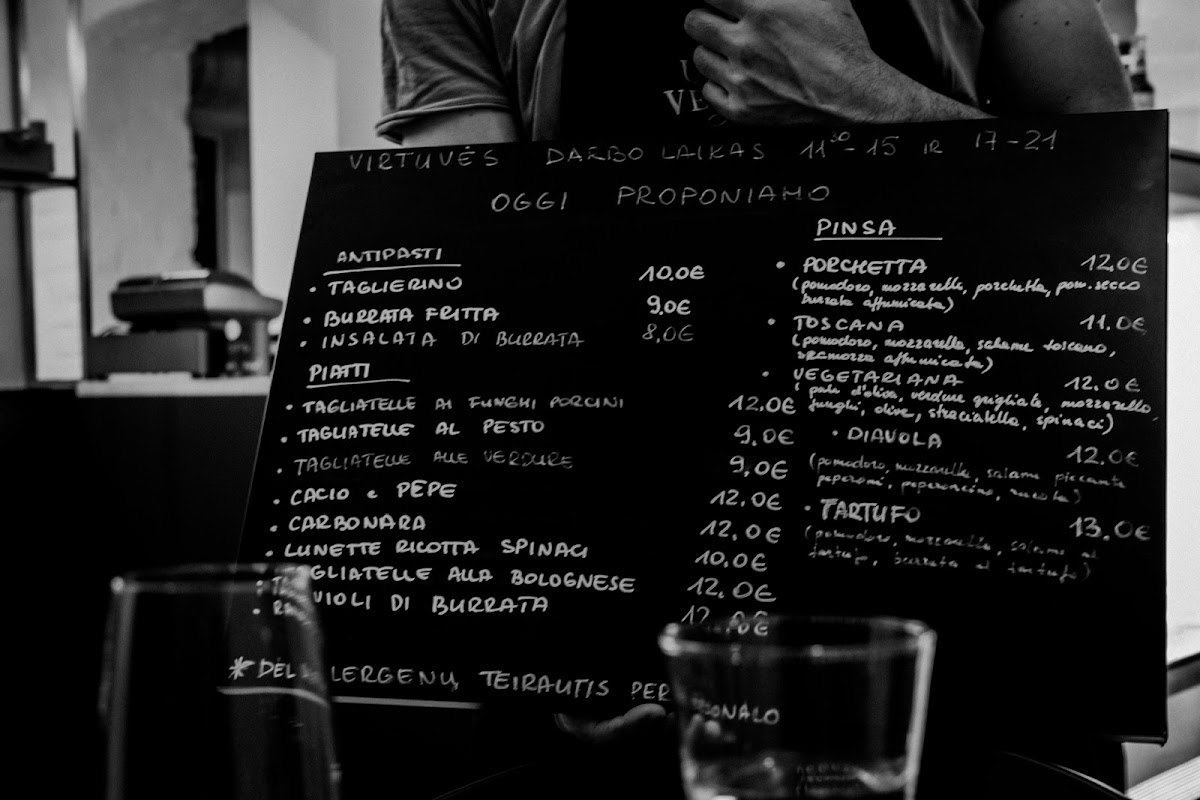 VE
VIRTUVĖS DARBO LAIKAS 11³⁰-15 IR 17-21
OGGI PROPONIAMO
ANTIPASTI
• TAGLIERINO 10.0€
• BURRATA FRITTA 9.0€
• INSALATA DI BURRATA 8.0€
PIATTI
• TAGLIATELLE AI FUNGHI PORCINI 12.0€
• TAGLIATELLE AL PESTO 9.0€
• TAGLIATELLE ALLE VERDURE 9.0€
• CACIO e PEPE 12.0€
• CARBONARA 12.0€
• LUNETTE RICOTTA SPINACI 10.0€
• TAGLIATELLE ALLA BOLOGNESE 12.0€
• RAVIOLI DI BURRATA 12.0€
PINSA
• PORCHETTA 12.0€
(pomodoro, mozzarella, porchetta, pom. secco
burrata affumicata)
• TOSCANA 11.0€
(pomodoro, mozzarella, salame toscano,
scamozza affumicata)
• VEGETARIANA 12.0€
(pate d'oliva, verdure grigliate, mozzarella,
funghi, olive, straciatella, spinaci)
• DIAVOLA 12.0€
(pomodoro, mozzarella, salame piccante
peperoni, peperoncino, rucola)
• TARTUFO 13.0€
(pomodoro, mozzarella, salame al
tartufo, burrata al tartufo)
* DĖL ALERGENŲ TEIRAUTIS PERSONALO